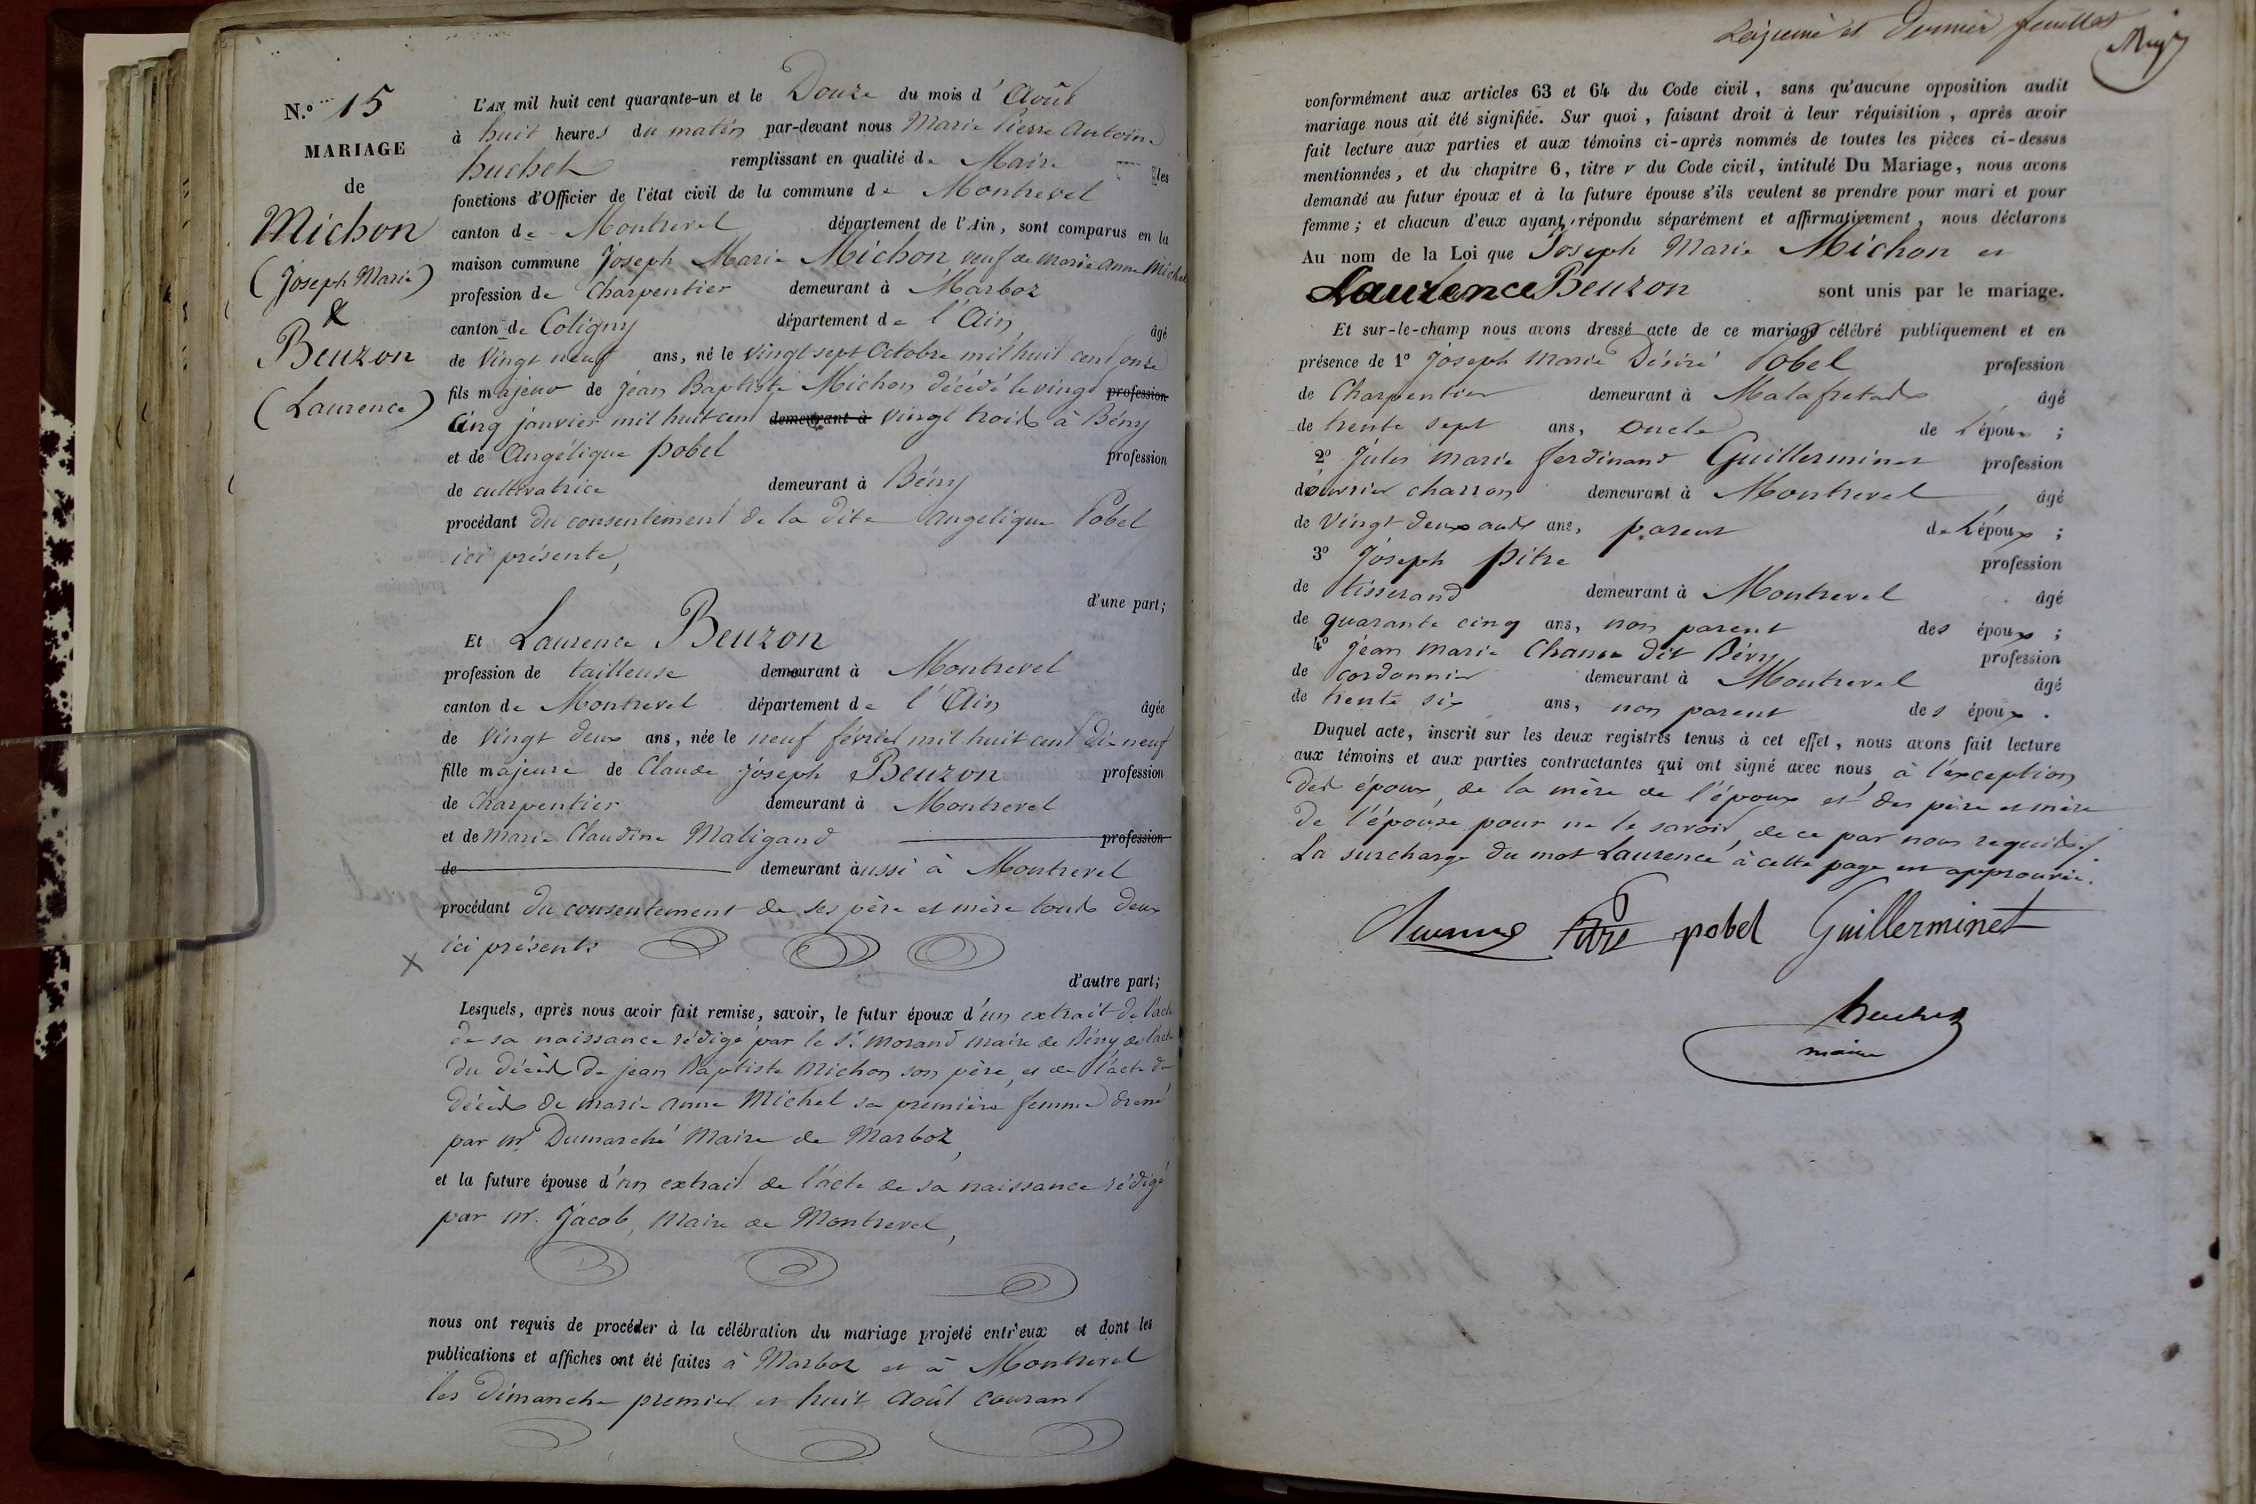 N.º 15
MARIAGE
de
Michon
(Joseph Marie)
&
Beuzon
(Laurence)
L'AN mil huit cent quarante-un et le Douze du mois d'Août
à huit heures du matin par-devant nous Marie Pierre Antoine
huchet remplissant en qualité de Maire les
fonctions d'Officier de l'état civil de la commune de Montrevel
canton de Montrevel département de l'Ain, sont comparus en la
maison commune Joseph Marie Michon veuf de Marie Anne Michel
profession de Charpentier demeurant à Marboz
canton de Coligny département de l'Ain âgé
de Vingt neuf ans, né le vingt sept Octobre mil huit cent onze
fils majeur de Jean Baptiste Michon décédé le vingt profession
Cinq janvier mil huit cent demeurant à vingt trois à Bény
et de Angélique Pobel profession
de cultivatrice demeurant à Bény
procédant du consentement de la dite Angélique Pobel
ici présente,
d'une part;
Et Laurence Beuzon
profession de tailleuse demeurant à Montrevel
canton de Montrevel département de l'Ain âgée
de Vingt deux ans, née le neuf février mil huit cent Dix neuf
fille majeure de Claude Joseph Beuzon profession
de Charpentier demeurant à Montrevel
et de Marie Claudine Maligand profession
de demeurant aussi à Montrevel
procédant du consentement de ses père et mère tous deux
ici présents
d'autre part;
Lesquels, après nous avoir fait remise, savoir, le futur époux d'un extrait de l'acte
de sa naissance rédigé par le Sr. Morand Maire de Bény de l'acte
du décès de jean Baptiste Michon son père, et de l'acte de
décès de marie anne Michel sa première femme dressé
par Mr. Dumarché Maire de Marboz,
et la future épouse d'un extrait de l'acte de sa naissance rédigé
par Mr. Jacob, Maire de Montrevel,
nous ont requis de procéder à la célébration du mariage projeté entr'eux et dont les
publications et affiches ont été faites à Marboz et à Montrevel
les Dimanche premier et huit Août courant
et Dernier feuillet
conformément aux articles 63 et 64 du Code civil, sans qu'aucune opposition audit
mariage nous ait été signifiée. Sur quoi, faisant droit à leur réquisition, après avoir
fait lecture aux parties et aux témoins ci-après nommés de toutes les pièces ci-dessus
mentionnées, et du chapitre 6, titre v du Code civil, intitulé Du Mariage, nous avons
demandé au futur époux et à la future épouse s'ils veulent se prendre pour mari et pour
femme; et chacun d'eux ayant répondu séparément et affirmativement, nous déclarons
Au nom de la Loi que Joseph Marie Michon et
Laurence Beuzon sont unis par le mariage.
Et sur-le-champ nous avons dressé acte de ce mariage célébré publiquement et en
présence de 1º Joseph Marie Désiré Pobel profession
de Charpentier demeurant à Malafretaz âgé
de trente sept ans, oncle de l'époux ;
2º Jules Marie Ferdinand Guillerminet profession
d'ouvrier charron demeurant à Montrevel âgé
de Vingt deux ans ans, parent de l'époux ;
3º Joseph Pitre profession
de tisserand demeurant à Montrevel âgé
de quarante cinq ans, non parent des époux ;
4º Jean Marie Chanu dit Bévy profession
de cordonnier demeurant à Montrevel âgé
de trente six ans, non parent des époux .
Duquel acte, inscrit sur les deux registres tenus à cet effet, nous avons fait lecture
aux témoins et aux parties contractantes qui ont signé avec nous, à l'exception
des époux, de la mère de l'époux et des père et mère
de l'épouse pour ne le savoir, de ce par nous requis.
La surcharge du mot Laurence à cette page est approuvée.
Pitre pobel Guillerminet
huchet
maire